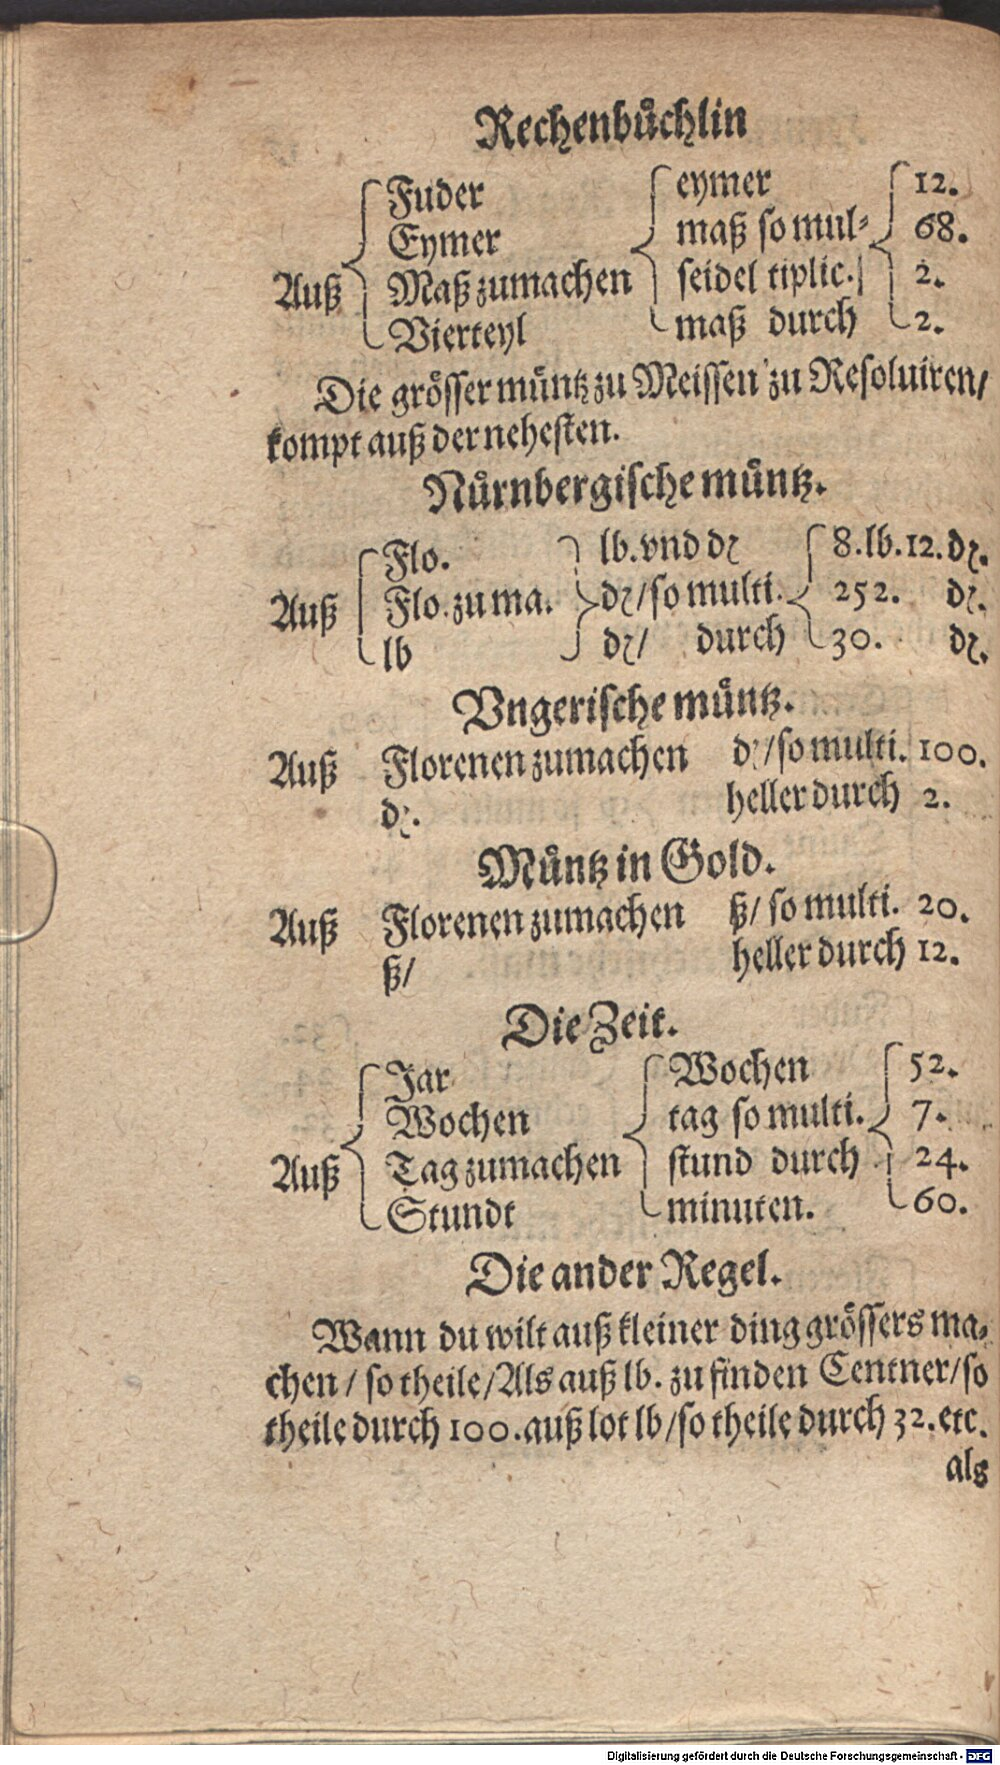 Rechenbuͤchlin
Fuder eymer 12.
Eymer maß so mul⸗ 68.
Auß Maß zumachen seidel tiplic. 2.
Vierteyl maß durch 2.
Die groͤsser muͤntz zu Meissen zu Resoluiren/
kompt auß der nehesten.
Nuͤrnbergische muͤntz.
Flo. lb. vnd dꝛ 8. lb. 12. dꝛ.
Auß Flo. zu ma. dꝛ/ so multi. 252. dꝛ.
lb dꝛ/ durch 30. dꝛ.
Vngerische muͤntz.
Auß Florenen zumachen dꝛ/ so multi. 100.
dꝛ. heller durch 2.
Muͤntz in Gold.
Auß Florenen zumachen ß/ so multi. 20.
ß/ heller durch 12.
Die Zeit.
Jar Wochen 52.
Wochen tag so multi. 7.
Auß Tag zumachen stund durch 24.
Stundt minuten. 60.
Die ander Regel.
Wann du wilt auß kleiner ding groͤssers ma⸗
chen / so theile / Als auß lb. zu finden Centner / so
theile durch 100. auß lot lb / so theile durch 32. etc.
als
Digitalisierung gefördert durch die Deutsche Forschungsgemeinschaft - DFG